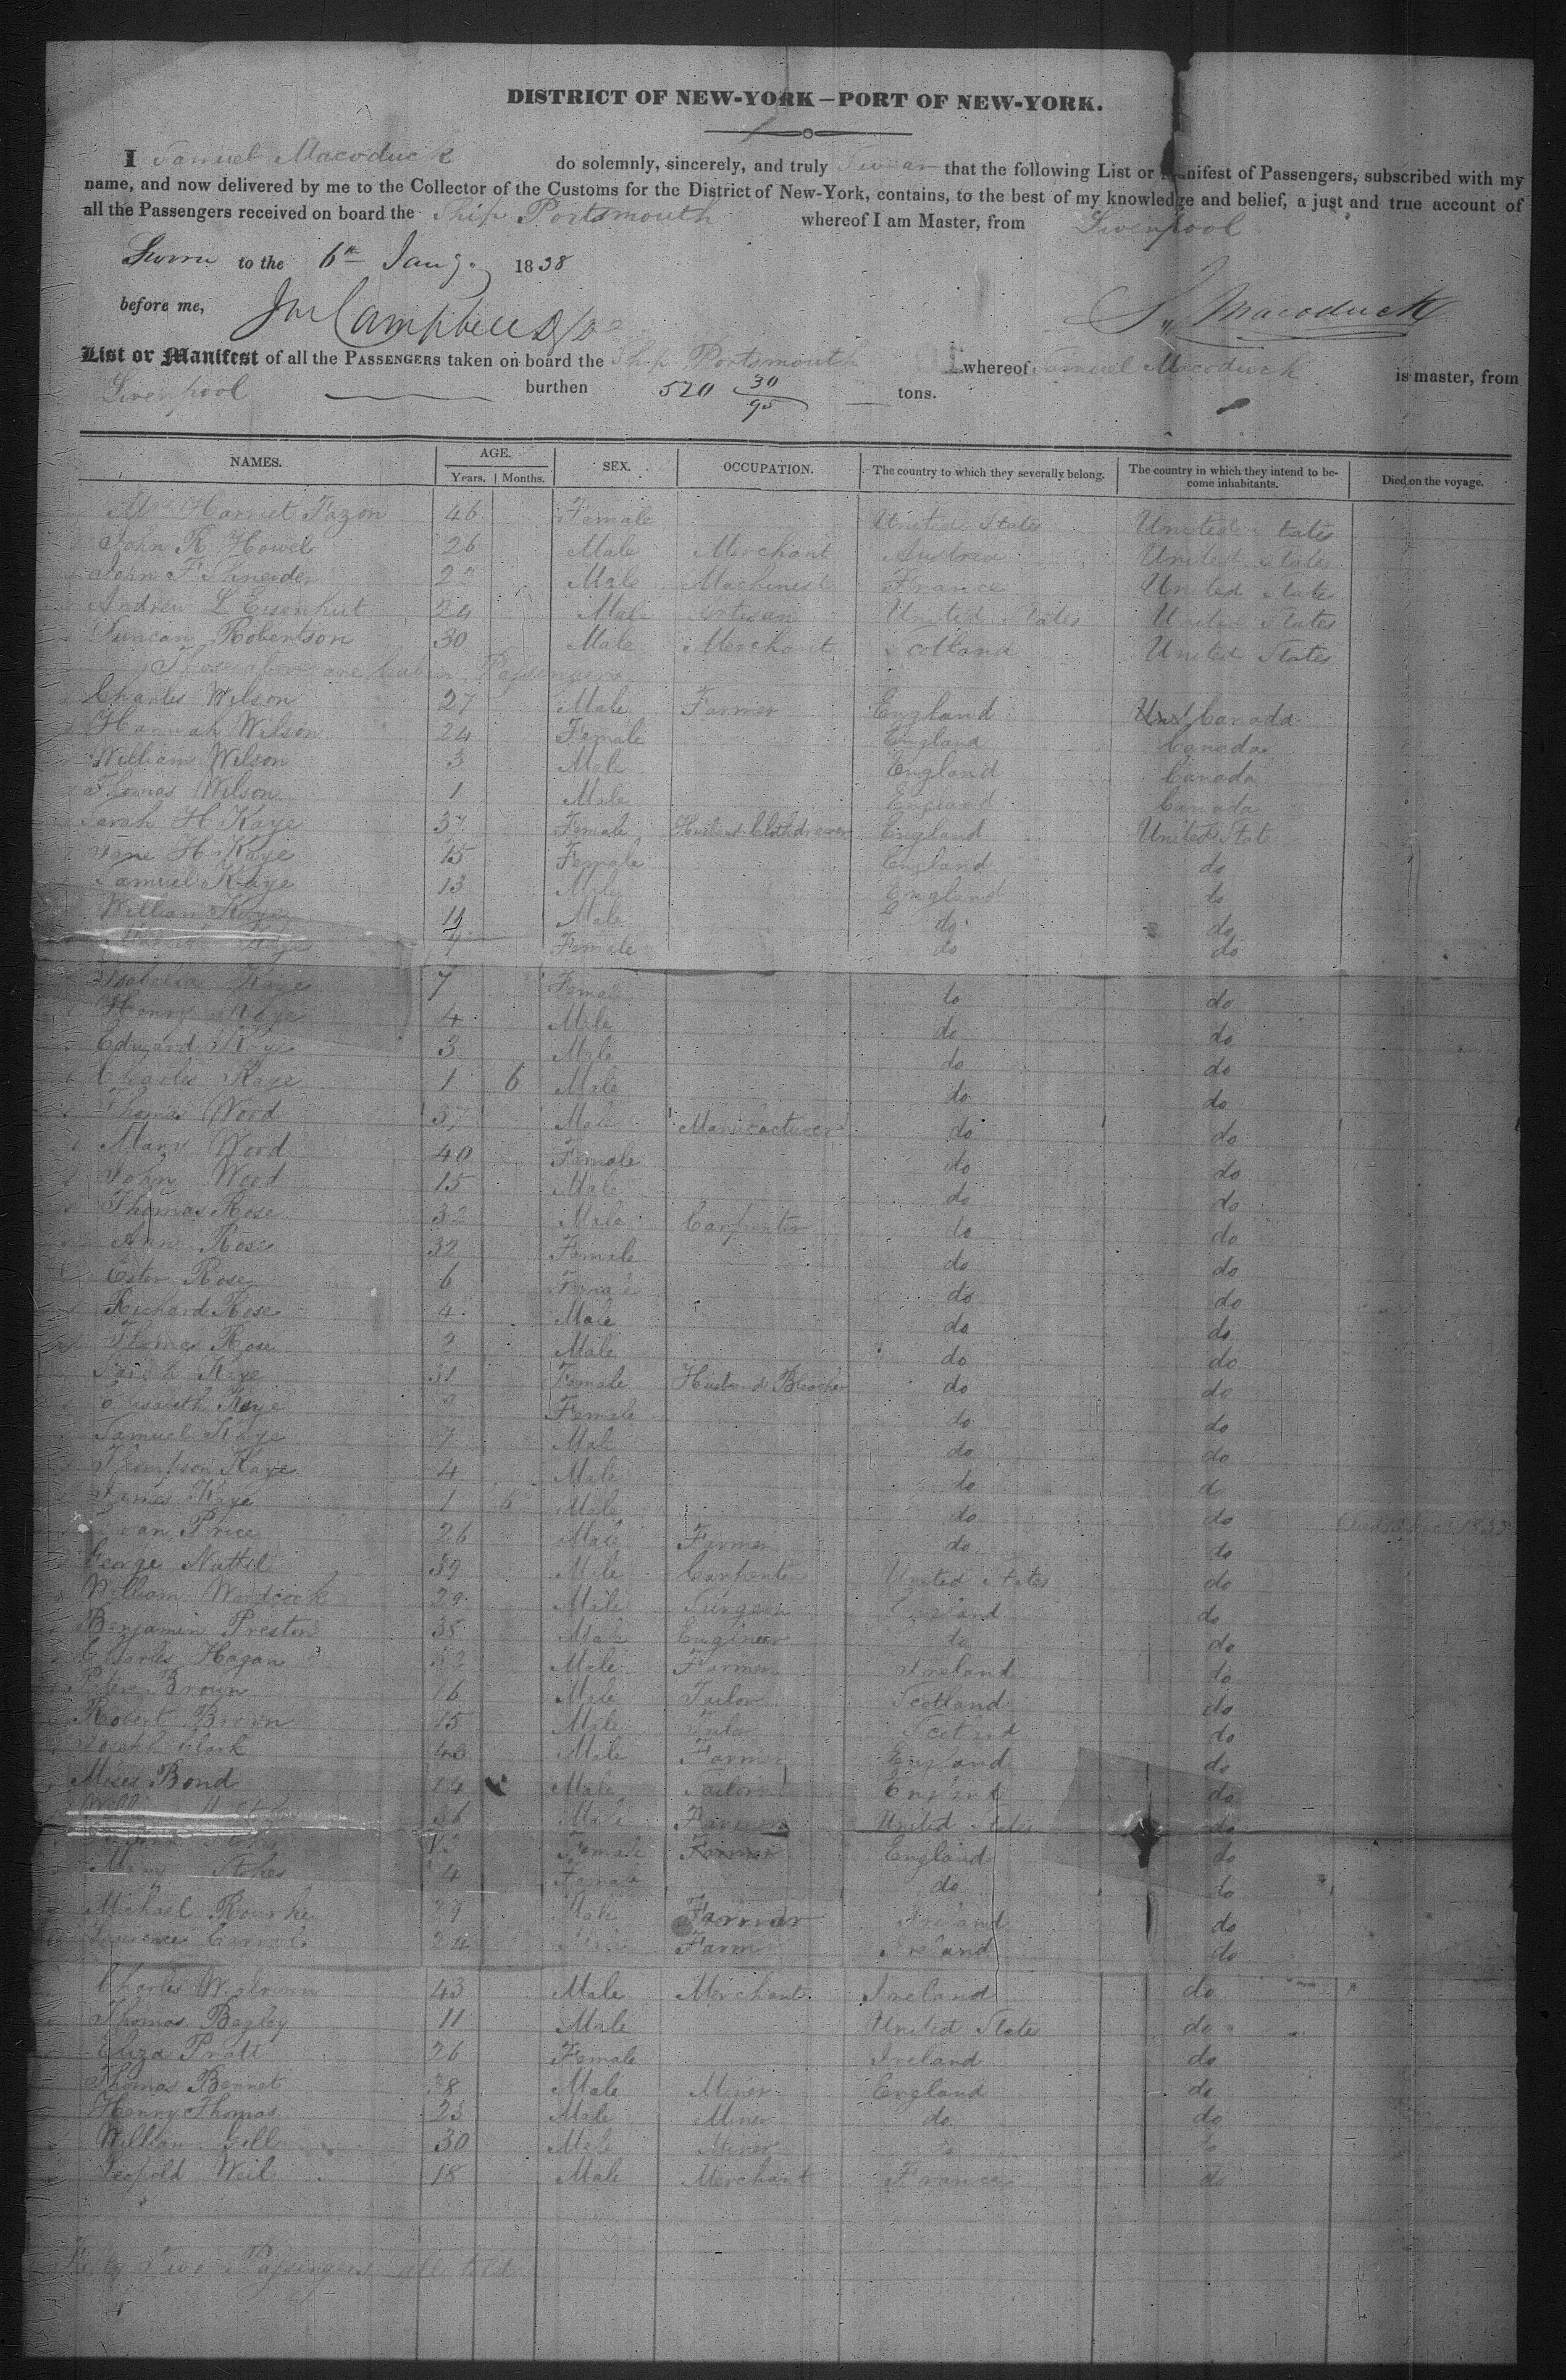 DISTRICT OF NEW-YORK—PORT OF NEW-YORK.
I Samuel Macoduck do solemnly, sincerely, and truly Swear that the following List or Manifest of Passengers, subscribed with my
name, and now delivered by me to the Collector of the Customs for the District of New-York, contains, to the best of my knowledge and belief, a just and true account of
all the Passengers received on board the Ship Portsmouth whereof I am Master, from Liverpool.
Sworn to the 6th Jany 1838
before me, Campbell S. Macoduck
List or Manifest of all the PASSENGERS taken on board the Ship Portsmouth whereof Samuel Macoduck is master, from
Liverpool burthen 520 30/95 tons.
NAMES. AGE. SEX. OCCUPATION. The country to which they severally belong. The country in which they intend to become inhabitants. Died on the voyage.
Years. Months.
Mrs Harriet Fazon 46 Female United States United States
John R Howel 26 Male Merchant Austria United States
John F Shneider 22 Male Machinest France United States
Andrew L Eisenhut 24 Male Artisan United States United States
Duncan Robertson 30 Male Merchant Scotland United States
Those above are Cabin Passengers
Charles Wilson 27 Male Farmer England Canada
Hannah Wilson 24 Female England Canada
William Wilson 3 Male England Canada
Thomas Wilson 1 Male England Canada
Sarah H Kaye 37 Female Husband Clothdresser England United Stat
Jane H Kaye 15 Female England do
Samuel Kaye 13 Male England do
William Kaye 11 Male do do
Kaye 9 Female do do
Isabella Kaye 7 Female do do
Henry Kaye 4 Male do do
Edward Kaye 3 Male do do
Charles Kaye 1 6 Male do do
Thomas Wood 37 Male Manufacturer do do
Mary Wood 40 Female do do
John Wood 15 Male do do
Thomas Rose 32 Male Carpenter do do
Ann Rose 32 Female do do
Ester Rose 6 Female do do
Richard Rose 4 Male do do
Thomas Rose 2 Male do do
Sarah Kaye 31 Female Husband Bleacher do do
Elisabeth Kaye Female do do
Samuel Kaye 7 Male do do
Thompson Kaye 4 Male do do
James Kaye 1 6 Male do do Died
Evan Price 26 Male Farmer do do
George Nuttel 32 Male Carpenter United States do
William Woodcock 29 Male Surgeon England do
Benjamin Preston 35 Male Engineer do do
Charles Hagan 52 Male Farmer Ireland do
Peter Brown 16 Male Tailor Scotland do
Robert Brown 15 Male Tailor Scotland do
Joseph Clark 40 Male Farmer England do
Moses Bond 14 Male Tailor England do
36 Male Farmer United States do
Stokes 13 Female Farmer England do
Mary Stokes 4 Female do do
Michael Rourke 29 Male Farmer Ireland do
Lawrence Carrol 24 Male Farmer Ireland do
Charles W. Irwin 43 Male Merchant Ireland do
Thomas Begley 11 Male United States do
Eliza Pratt 26 Female Ireland do
Thomas Bennet 38 Male Miner England do
Henry Thomas 23 Male Miner do do
William Gill 30 Male Miner do do
Leopold Weil 18 Male Merchant France do
Fifty Two Passengers all told